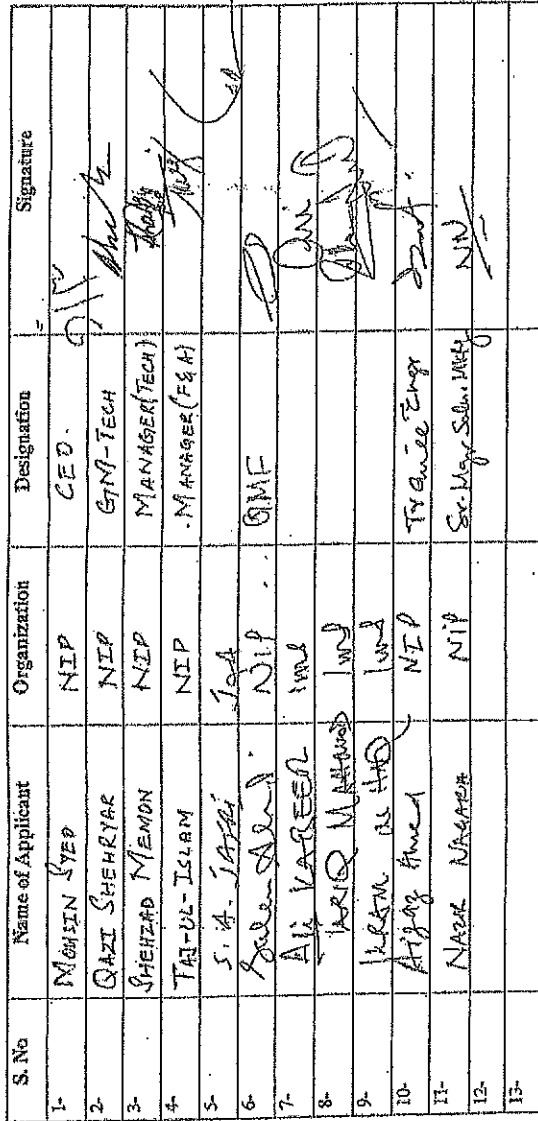 S. No Name of Applicant Organization Designation Signature
1- MOHSIN SYED NIP CEO.
2- QAZI SHEHRYAR NIP GM-TECH
3- SHEHZAD MEMON NIP MANAGER(TECH)
4- TAJ-UL-ISLAM NIP MANAGER(F&A)
5- S. A. JAFRI
6- NIP GMF
7- Ali KABEER Ind
8- TARIQ MAHMOOD Ind
9- IKRAM Ul HAQ Ind
10- Aijaz Ahmed NIP Trainee Engr
11- NAZIR NAGARIA NIP Sr. Mgr Sales
12-
13-